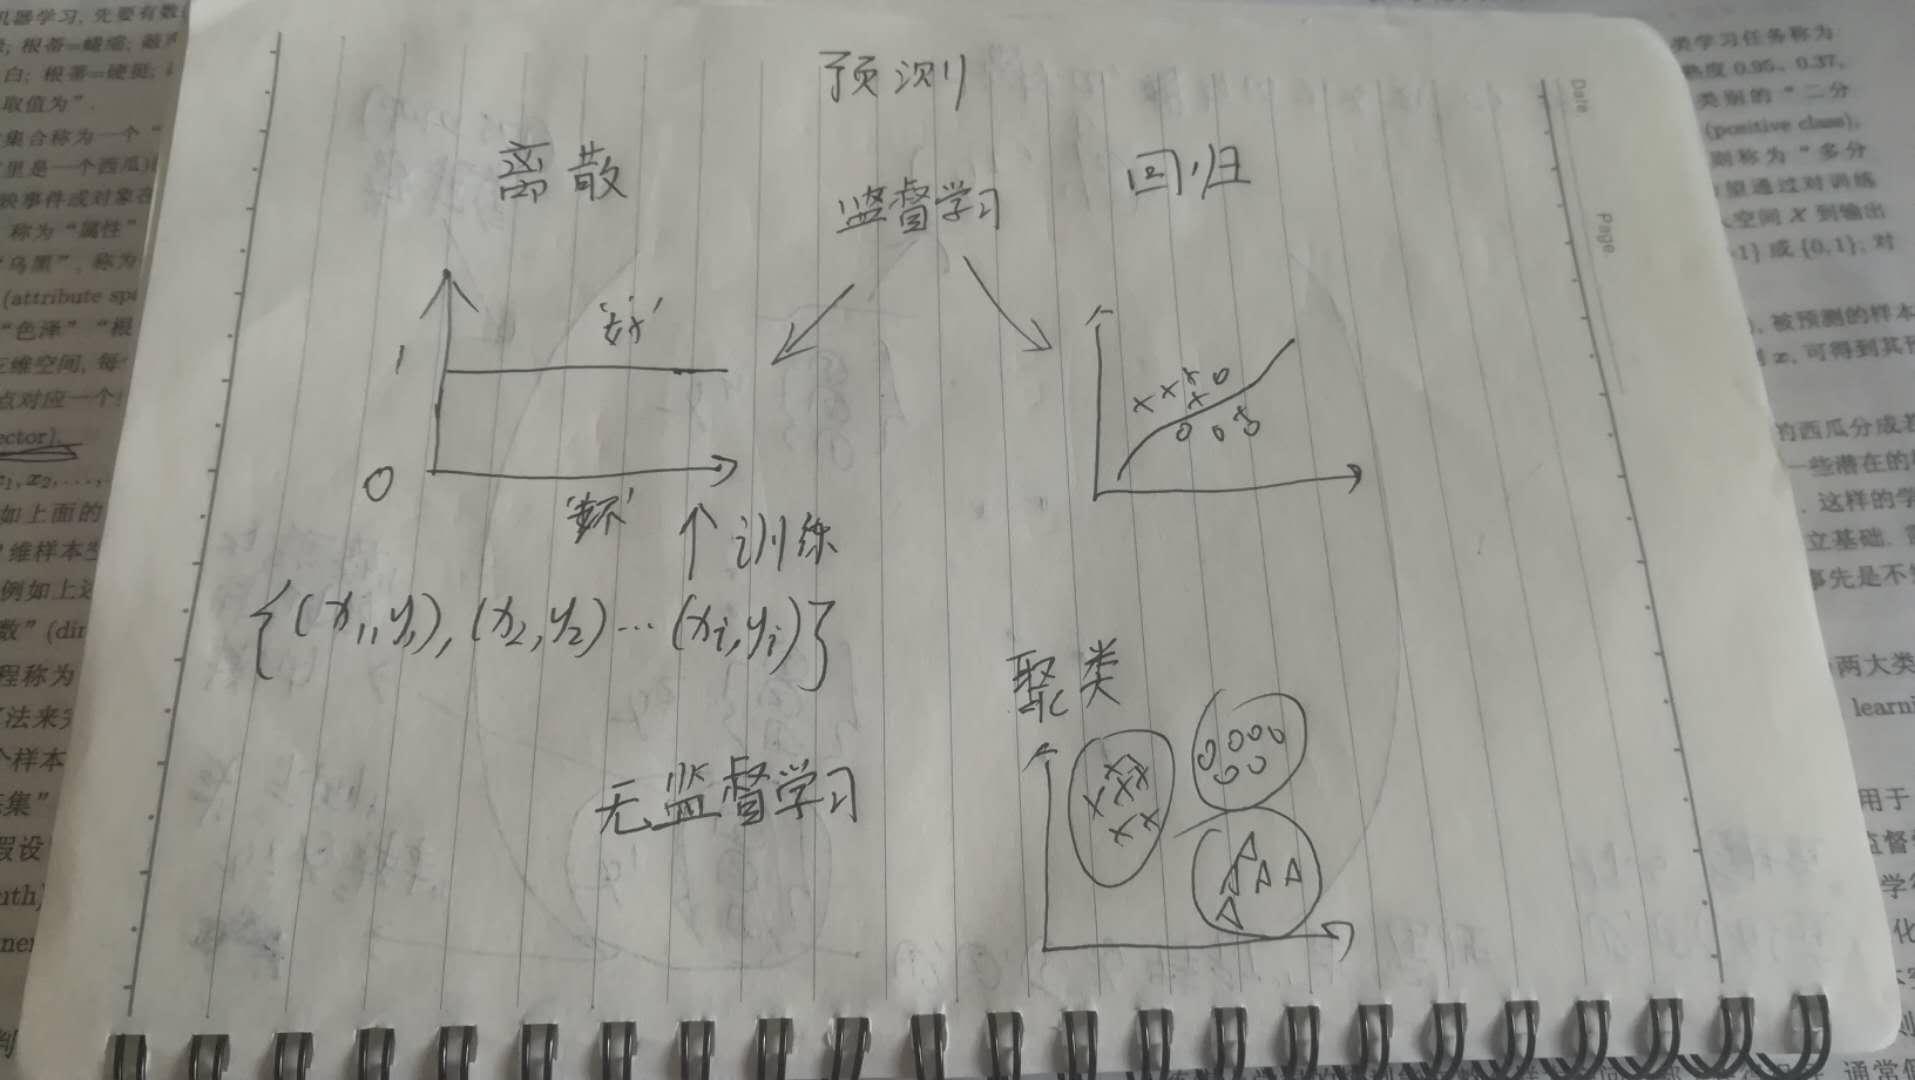 预测
离散
监督学习
回归
'好'
1
0
'坏'
训练
{(x₁,y₁),(x₂,y₂)…(xᵢ,yᵢ)}
聚类
无监督学习
Date
Page
机器学习, 先要有数
根蒂=蜷缩; 敲声
白; 根蒂=硬挺;
取值为".
集合称为一个"
里是一个西瓜)
映事件或对象在
称为"属性"
"乌黑", 称为
(attribute spa
"色泽" "根
三维空间, 每
点对应一个
ector).
如上面的
维样本空
例如上述
数" (dim
程称为
个样本
集"
假设
类学习任务称为
熟度 0.95、0.37,
类别的"二分
(positive class),
则称为"多分
望通过对训练
空间 X 到输出
1} 或 {0,1}; 对
, 被预测的样本
x, 可得到其预
的西瓜分成若
一些潜在的
. 这样的学
立基础. 需
事先是不
两大类
learni
用于
监督
通常假